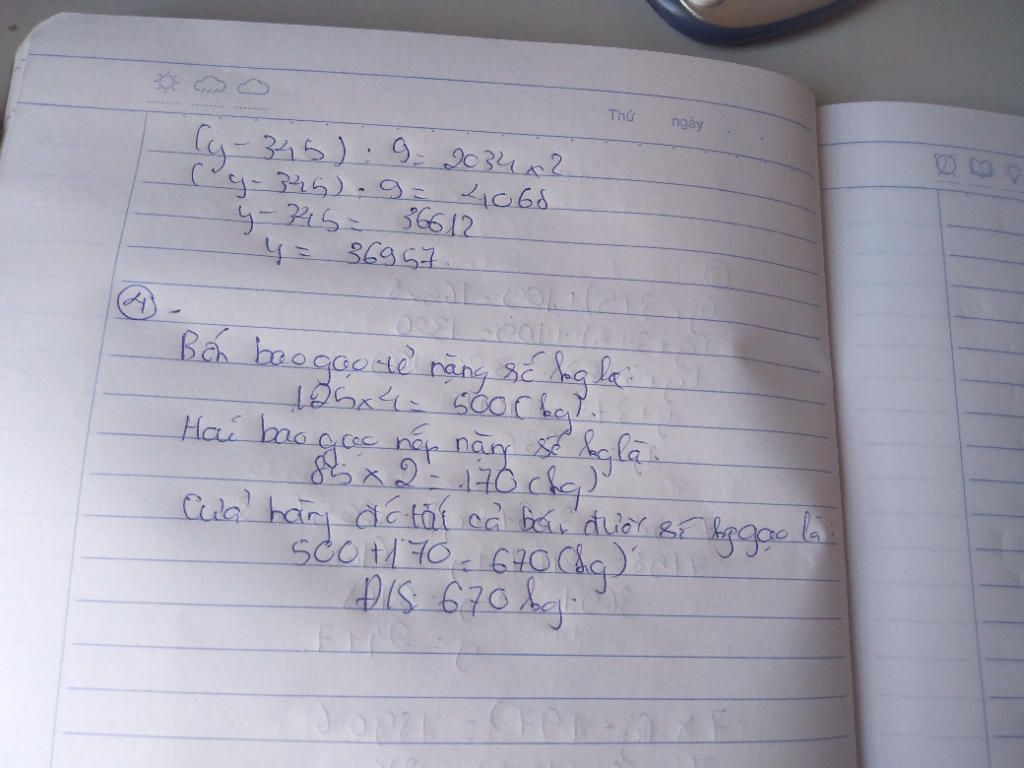 Thứ ngày
(y - 345) : 9 = 2034 x 2
(y - 345) : 9 = 4068
y - 345 = 36612
y = 36957.
4 -
Bốn bao gạo tẻ nặng số kg là:
125 x 4 = 500 (kg).
Hai bao gạo nếp nặng số kg là:
85 x 2 = 170 (kg)
Cửa hàng đó tất cả bán được số kg gạo là:
500 + 170 = 670 (kg)
Đ/S: 670 kg.